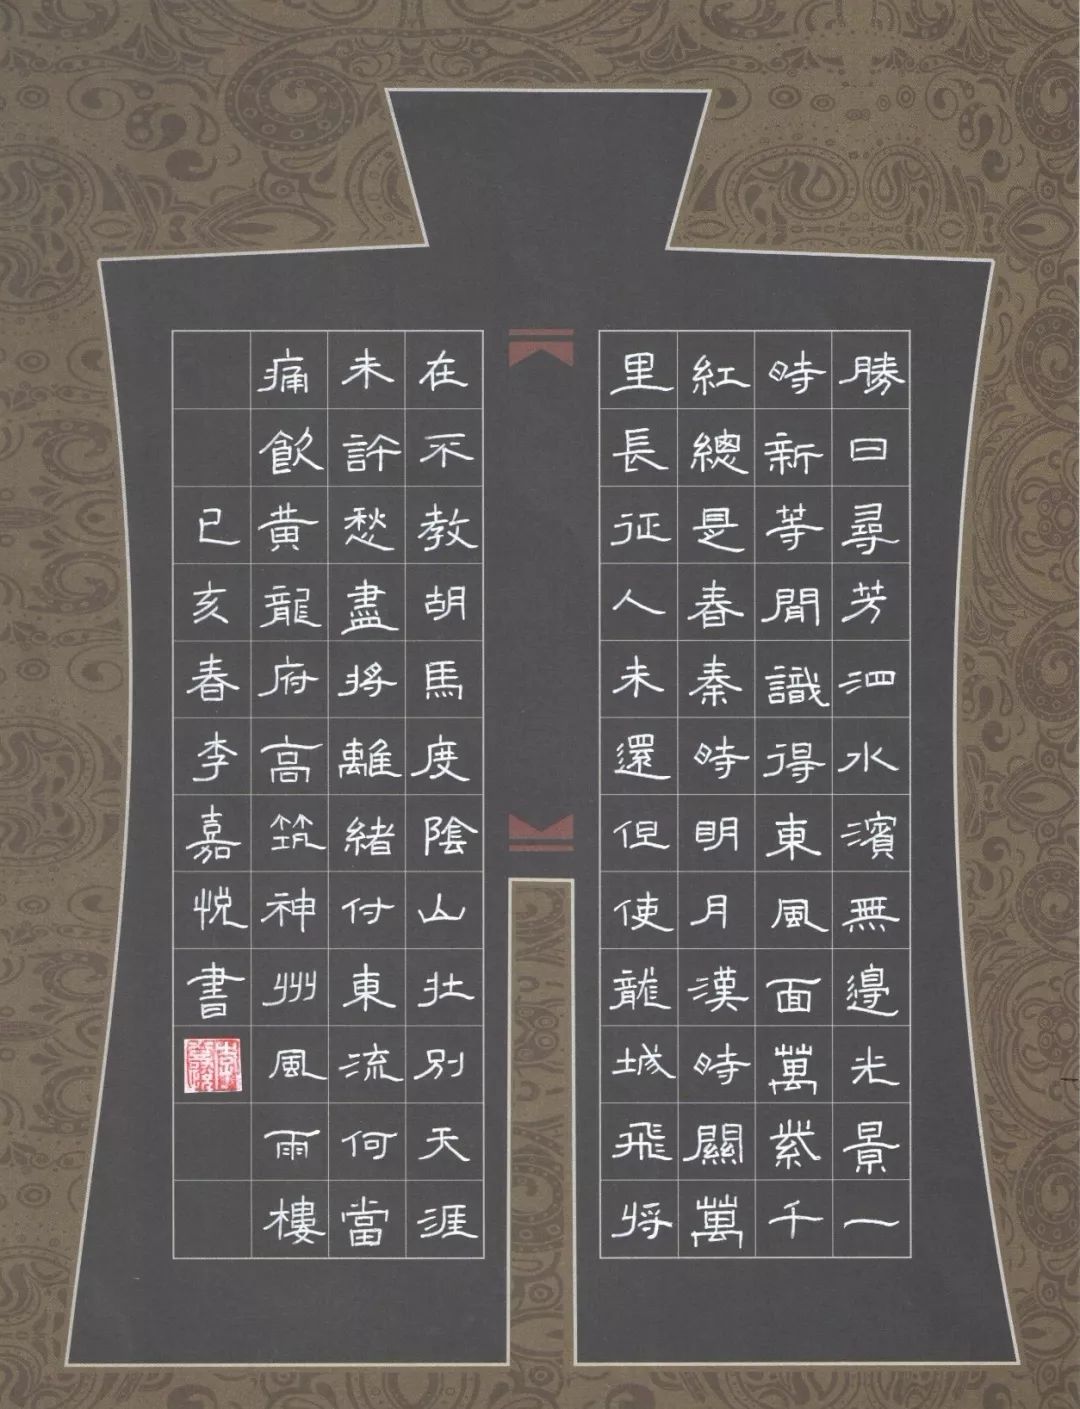 勝日尋芳泗水濱無邊光景一
時新等閒識得東風面萬紫千
紅總是春秦時明月漢時關萬
里長征人未還但使龍城飛將
在不教胡馬度陰山壯別天涯
未許愁盡將離緒付東流何當
痛飲黃龍府高筑神州風雨樓
己亥春李嘉悅書